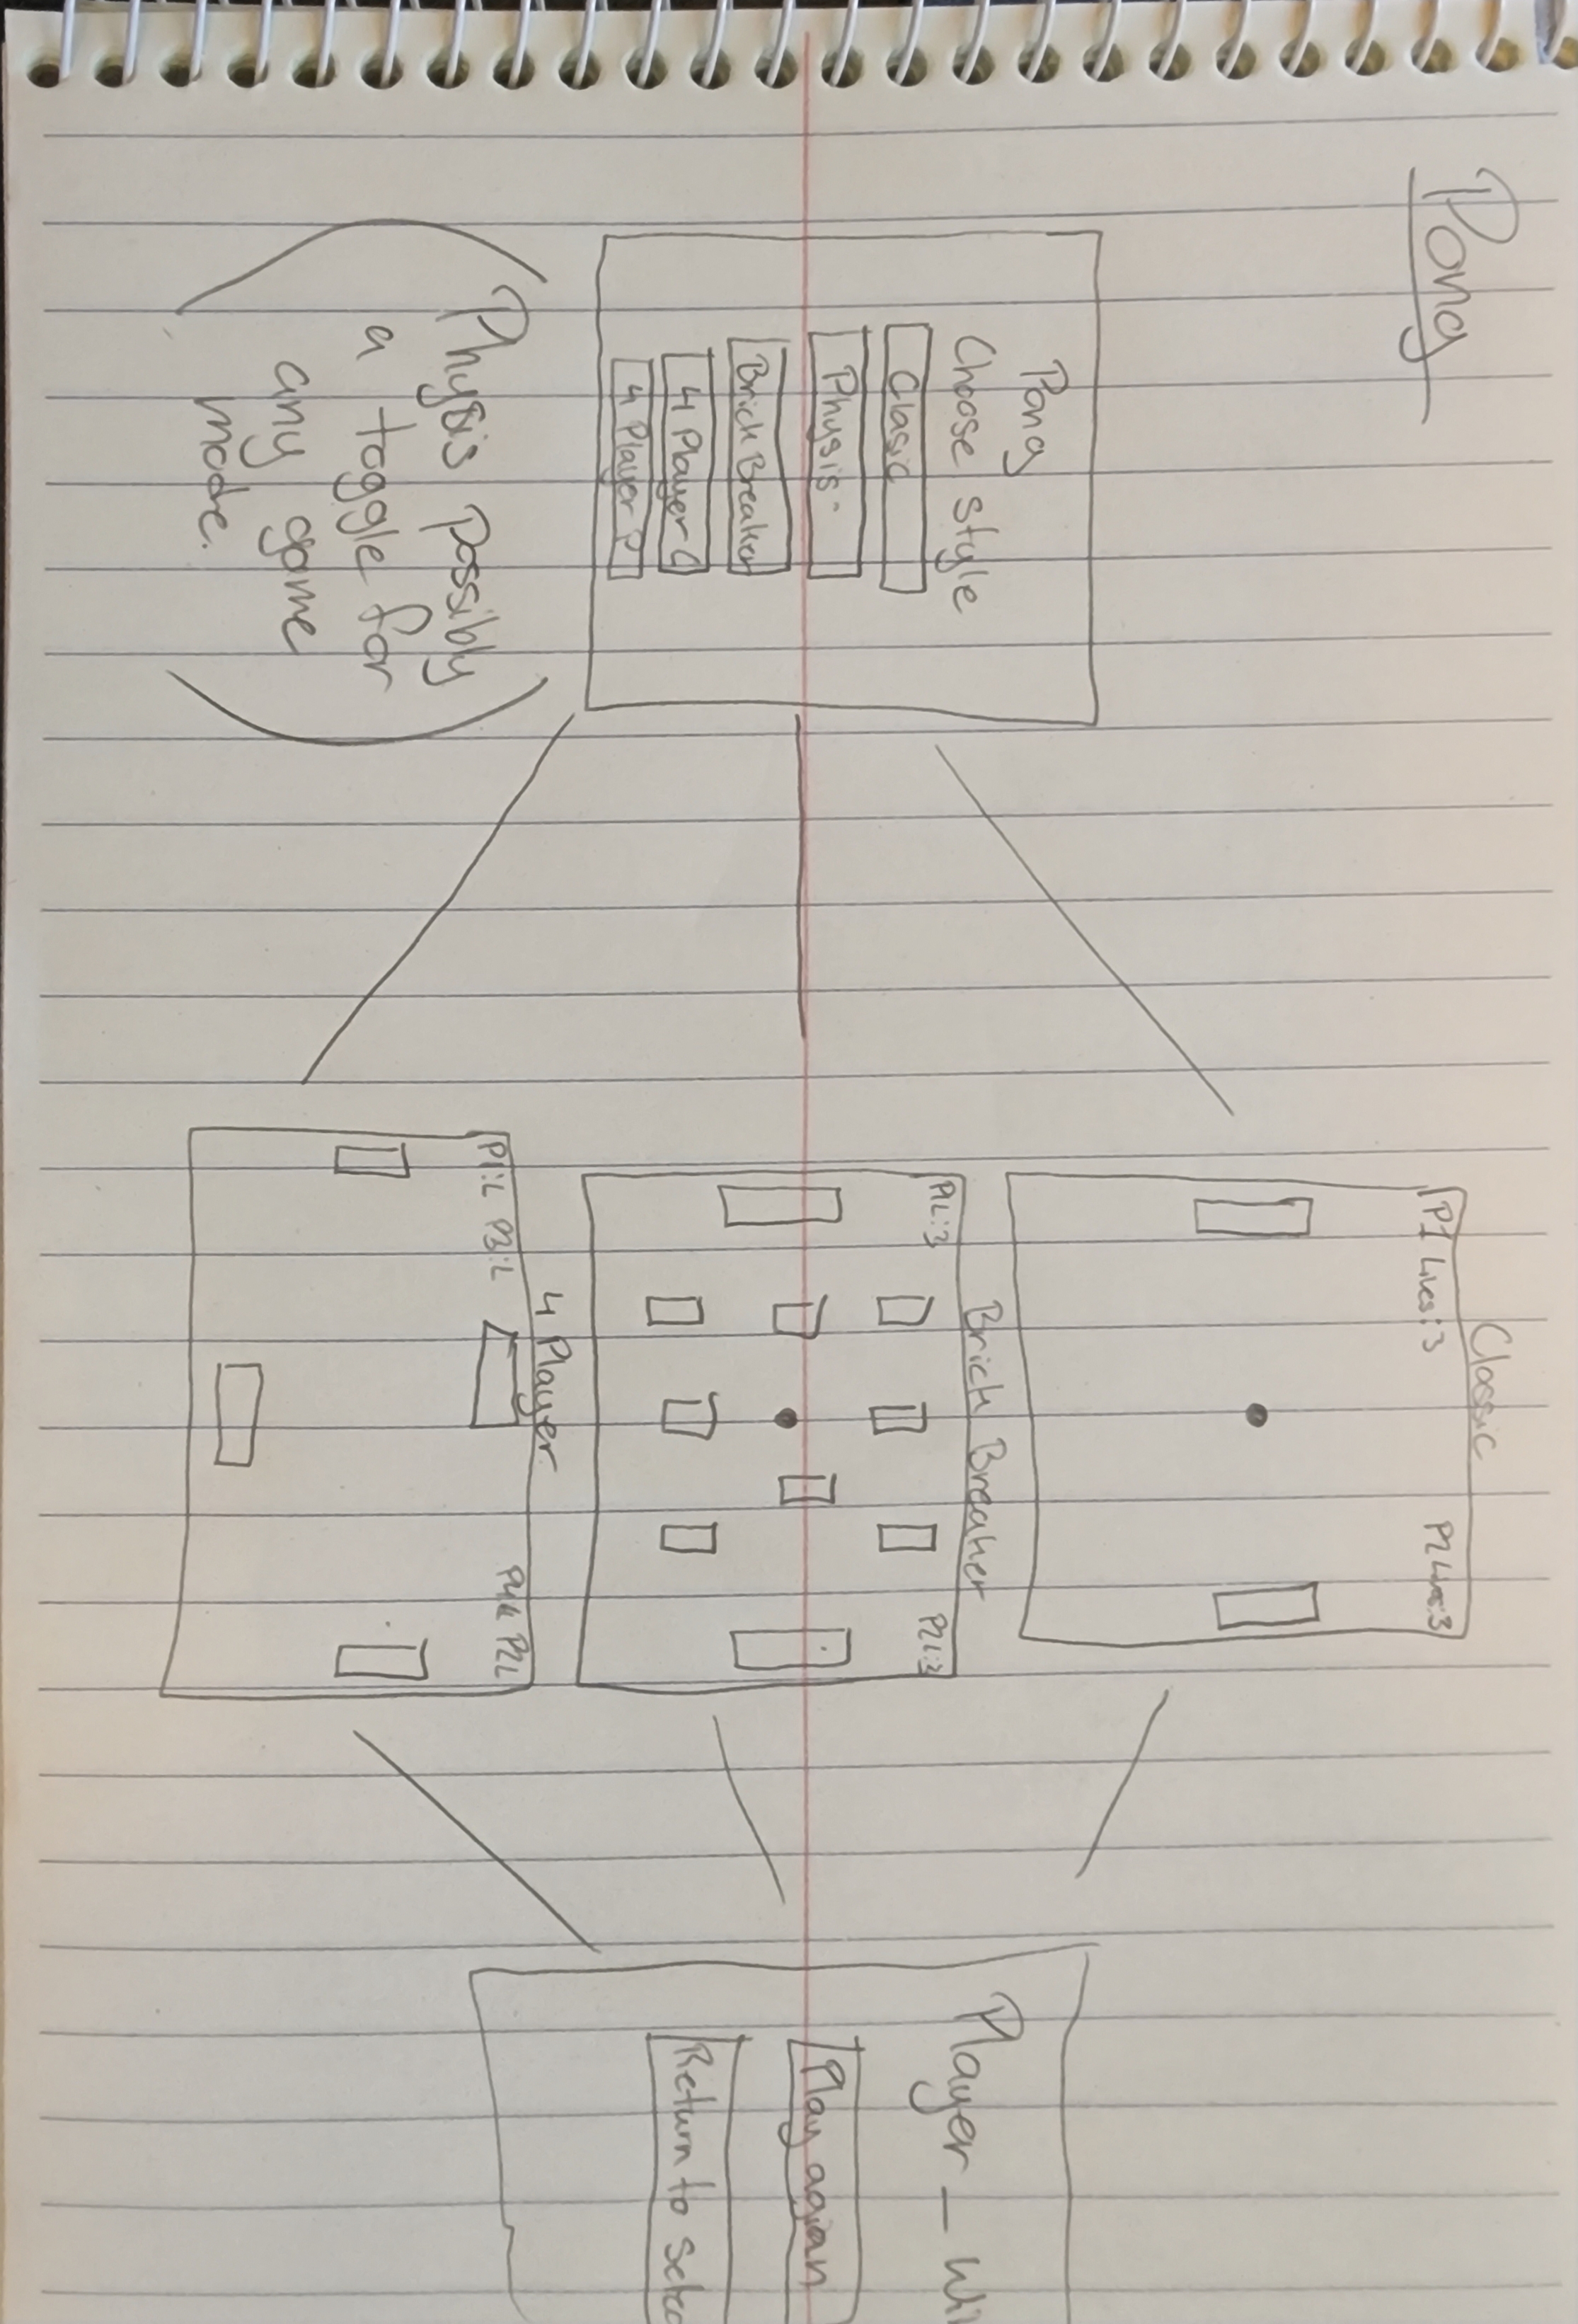 Pong
Pong
Choose style
Clasic
Physis
Brick Breaker
4 Player C
4 Player P
Physis possibly
a toggle for
any game
mode.
Classic
P1 Lives:3
P2 Lives:3
Brick Breaker
P1L:3
P2L:3
4 Player
P1:L P3:L
P4L P2L
Player _
Play agian
Return to